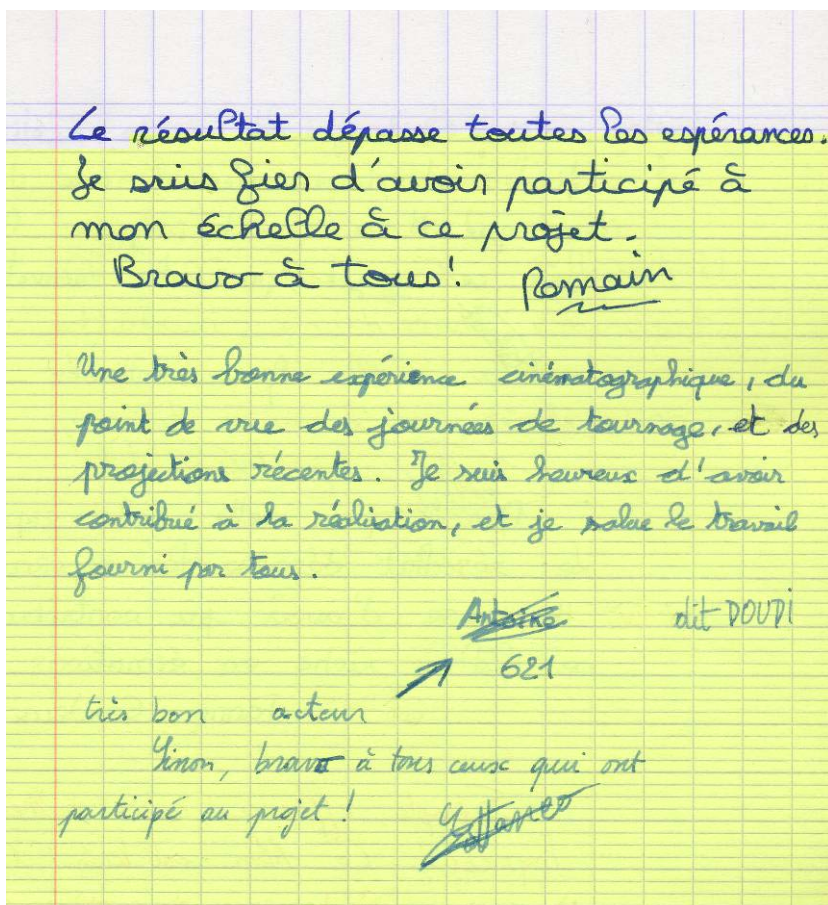 Le résultat dépasse toutes les espérances.
Je suis fier d'avoir participé à
mon échelle à ce projet.
Bravo à tous! Romain
Une très bonne expérience cinématographique, du
point de vue des journées de tournage, et des
projections récentes. Je suis heureux d'avoir
contribué à la réalisation, et je salue le travail
fourni par tous.
Antoine dit DOUDI
621
très bon acteur
Sinon, bravo à tous ceux qui ont
participé au projet!